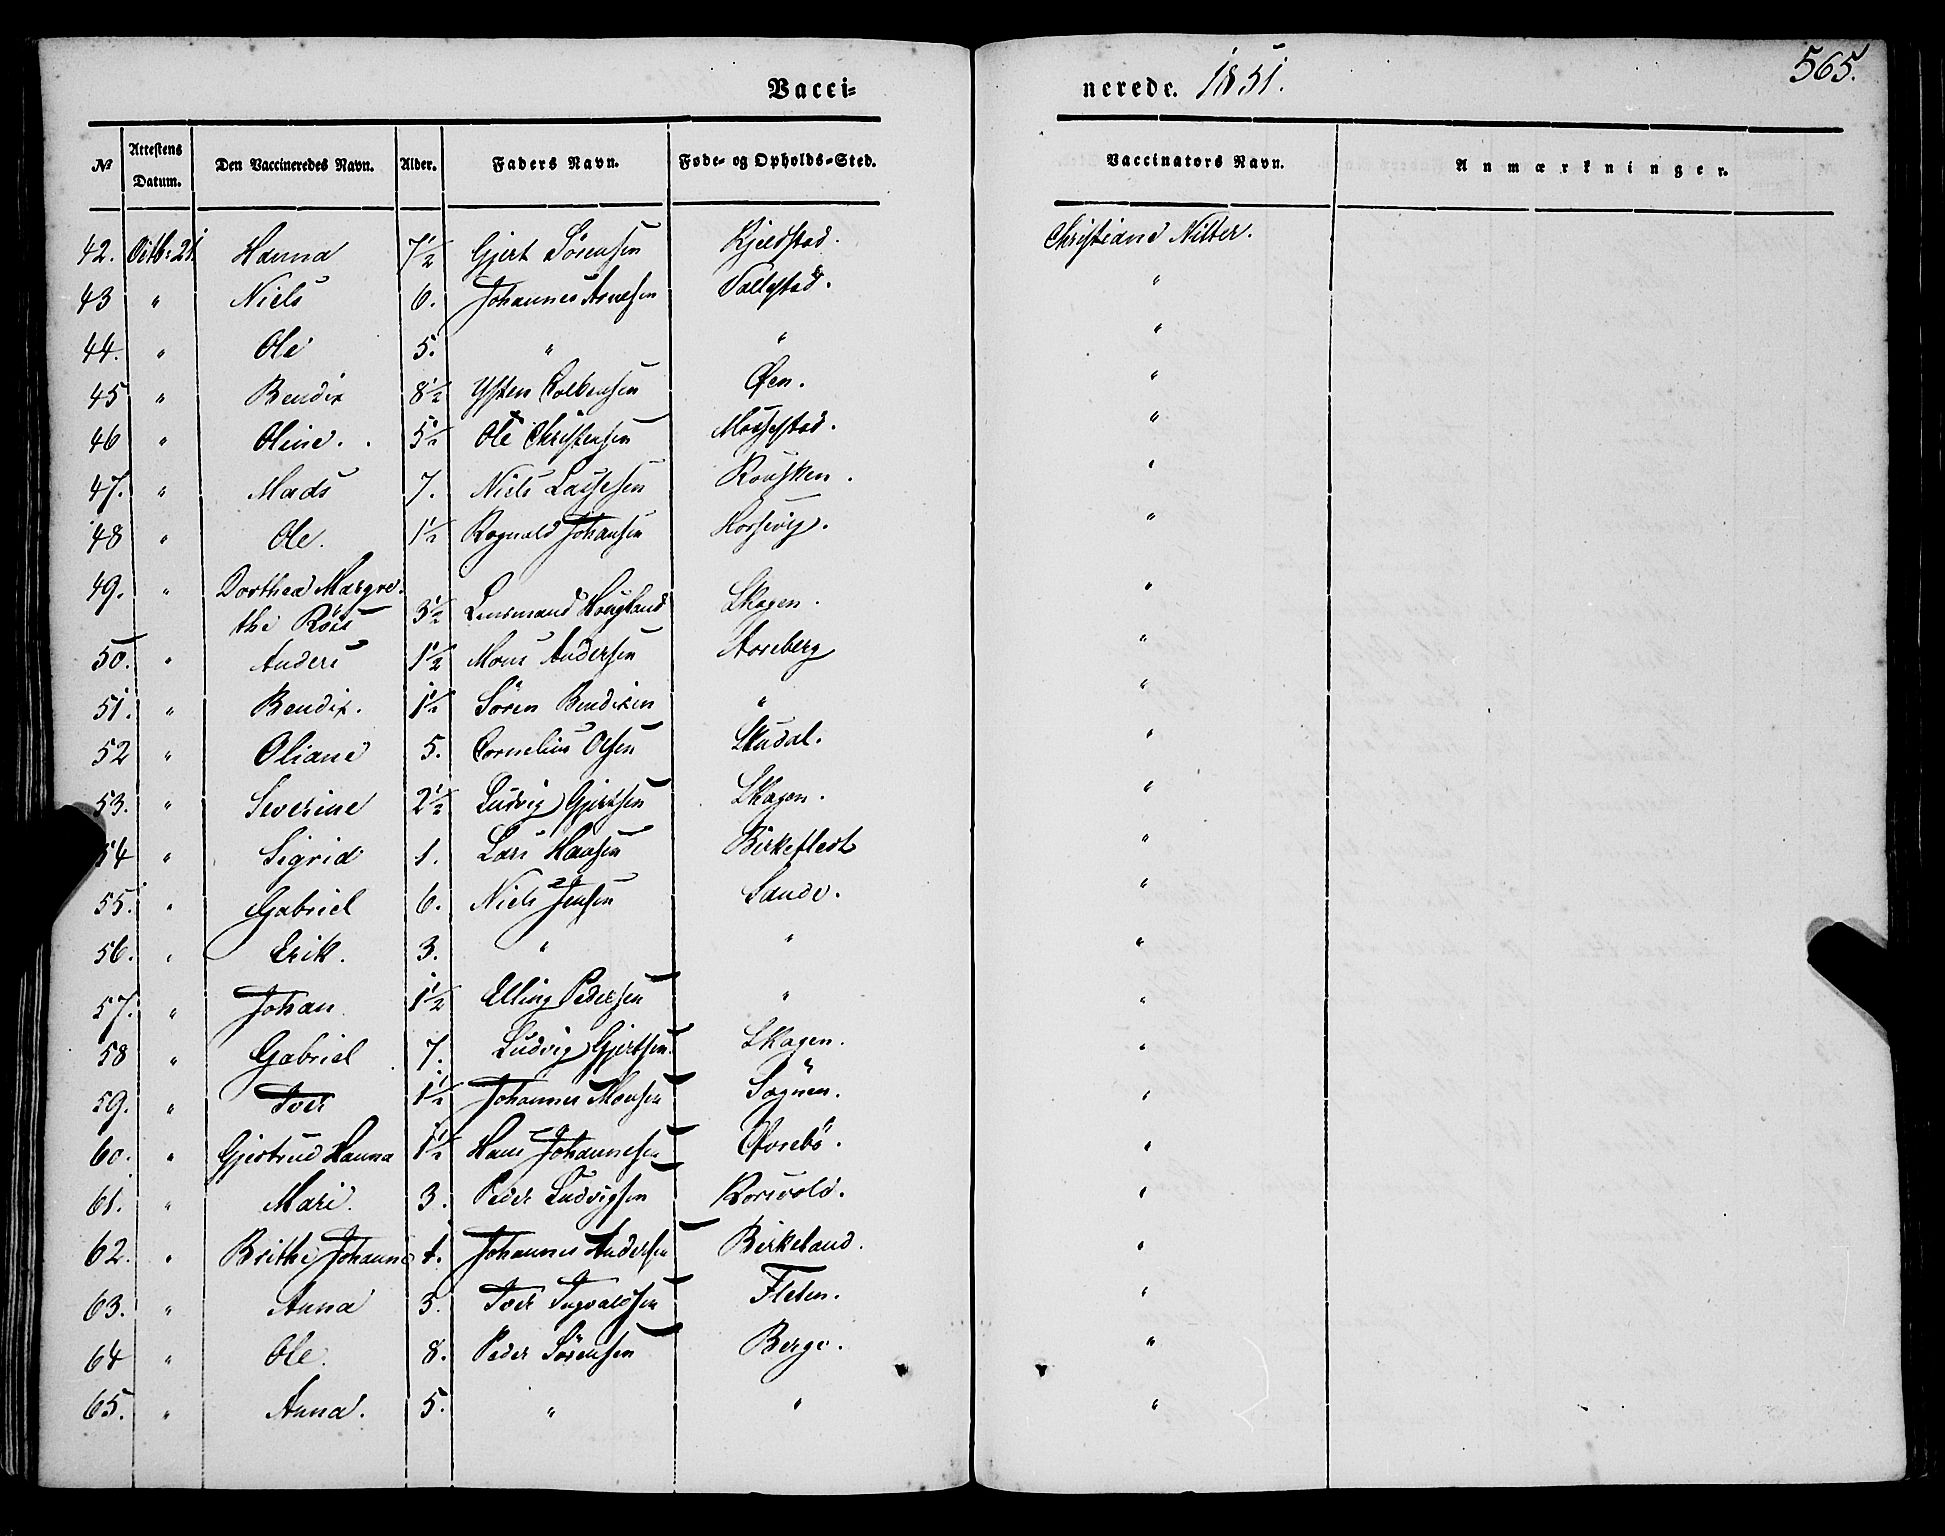 Vacci= nerede. 1851. 565.
№ Attestens Datum. Den Vaccineredes Navn. Alder. Faders Navn. Føde- og Opholds-Sted. Vaccinators Navn. Anmærkninger.
42. Octb: 21. Hanna 7½ Gjert Sörensen Kjelstad. Christiane Nitter.
43 " Niels 6. Johannes Arnesen "
44. " Ole 5. " " "
45 " Bendix 8½ Ysten Colbensen Øen. "
46 " Oline. 5½ Ole Christensen "
47. " Mads 7. Niels Lassesen "
48 " Ole. 1½ Rognald Johansen "
49. " Dorthea Margre-
the 3½ Lensmand Skagen. "
50. " Anders 1½ Mons Andersen Aareberg "
51. " Bendix. 1½ Sören Bendixen " "
52 " Oliane 5. Cornelius Olsen Skudal. "
53. " Severine 2½ Ludvig Gjertsen Skagen. "
54 " Sigrid 1. Lars Hansen Birkeflect "
55. " Gabriel 6. Niels Jensen Sande. "
56. " Erik. 3. " " "
57. " Johan 1½ Elling Pedersen " "
58 " Gabriel 7. Ludvig Gjertsen. Skagen. "
59. " Iver 1½ Johannes Monsen Sognen. "
60. " Gjertrud Hanna 1½ Hans Johannesen Øvrebö. "
61. " Mari. 3. Peder Ludvigsen Korsvold. "
62. " Brithe Johanne 1. Johannes Andersen Birkeland. "
63. " Anna 3. Iver Ingvaldsen Fleten. "
64 " Ole. 8. Peder Sörensen Berge. "
65. " Anna. 5. " " "